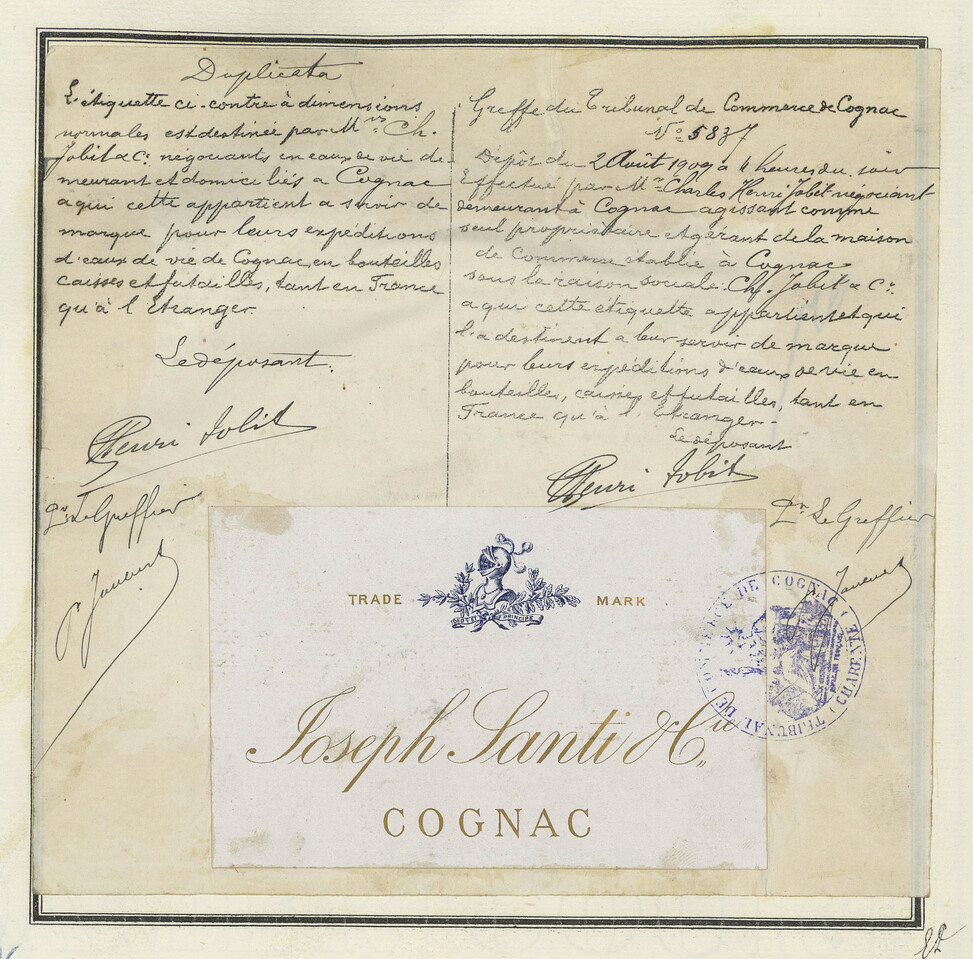 Duplicata
L'étiquette ci-contre à dimensions
normales est destinée par Mrs Ch.
Jobit & Cie négociants en eaux de vie de-
meurant et domiciliés a Cognac
a qui cette appartient a servir de
marque pour leurs expéditions
d'eaux de vie de Cognac, en bouteilles
caisses et futailles, tant en France
qu'à l'Etranger.
Le déposant.
Henri Jobit
Pr Le Greffier
Greffe du Tribunal de Commerce de Cognac
No 5837
Dépôt du 2 Août 1909 à 4 heures du soir
Effectué par Mr Charles Henri Jobit négociant
demeurant à Cognac agissant comme
seul propriétaire et gérant de la maison
de Commerce établie à Cognac
sous la raison sociale. Ch. Jobit & Cie
a qui cette étiquette appartient et qui
l'a destinent a leur servir de marque
pour leurs expéditions d'eaux de vie en
bouteilles, caisses et futailles, tant en
France qu'à l'Etranger-
Le déposant
Henri Jobit
Pr Le Greffier
TRADE MARK
Joseph Santi & Cie
COGNAC
TRIBUNAL DE COMMERCE DE COGNAC (CHARENTE)